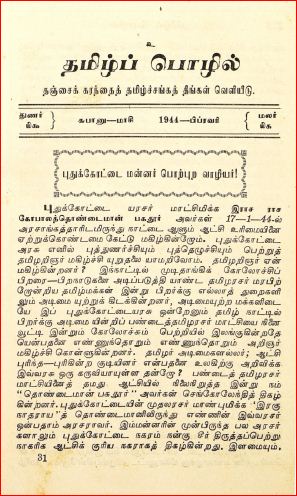 உ
தமிழ்ப் பொழில்
தஞ்சைக் கரந்தைத் தமிழ்ச்சங்கத் திங்கள் வெளியீடு.
துணர் சுபானு—மாசி 1944—பிப்ரவரி மலர்
புதுக்கோட்டை மன்னர் பொற்புற வாழியர்!
புதுக்கோட்டை யரசர் மாட்சிமிக்க இராச ராச
கோபாலத்தொண்டைமான் பகதூர் அவர்கள் 17—1—44-ல்
அரசாங்கத்தாரிடமிருந்து நாட்டை ஆளும் ஆட்சி உரிமையினை
ஏற்றுக்கொண்டமை கேட்டு மகிழ்கின்றோம். புதுக்கோட்டை
அரசு எளில் புத்துணர்ச்சியும் புத்தெழுச்சியும் பெற்றுத்
தமிழறிஞர் மகிழ்ச்சி யுறுதலே யாமறிவோம். தமிழறிஞர் ஏன்
மகிழ்கின்றனர்? இந்நாட்டில் முடிதாங்கிக் கோலோச்சிப்
பிறரை—பிறநாடுகளை அடிப்படுத்தி யாண்ட தமிழரசர் மரபிற்
றோன்றிய தமிழ்மக்கள் இன்று பிறர்க்கு எல்லாத் துறைகளி
லும் அடிமை யுற்றுக் கிடக்கின்றனர், அடிமையுற்ற மக்களிடை
யே இப் புதுக்கோட்டையரசு ஒன்றேனும் தமிழ் நாட்டில்
பிறர்க்கு அடிமை யின்றிப் பண்டைத்தமிழரசர் மாட்சியை நினை
வூட்டி இன்றும் கோலோச்சும் பெற்றியில் இலங்குகின்றதே
யென்பதனை எண்ணுந்தொறும் எண்ணுந்தொறும் அறிஞர்
மகிழ்ச்சி கொள்ளுகின்றனர். தமிழர் அடிமைகளல்லர்; ஆட்சி
புரிந்த—புரிகின்ற குடியினர் என்பதனை உலகிற்கு அறிவிக்க
இவ்வரசு ஒரு கருவியாயுள்ள தன்றோ? பண்டைத் தமிழரசர்
மாட்சியினைத் தமது ஆட்சியில் நிலைநிறுத்த இன்று நம்
“தொண்டைமான் பகதூர்” அவர்கள் செங்கோலேந்தித் திகழ்
கின்றனர். புதுக்கோட்டையின் முதலரசர் மாண்புமிக்க ‘இரகு
நாதராய’த் தொண்டைமானிலிருந்து எண்ணின் இவ்வரசர்
ஒன்பதாம் அரசராவர். இம்மன்னரின் முன்பிருந்த பல அரசர்
களாலும் புதுக்கோட்டை நகரம் நன்கு சீர் திருத்தப்பெற்று
நாகரிக ஆட்சிக் குரிய நகரமாகத் திகழ்கின்றது. இளமையும்,
31